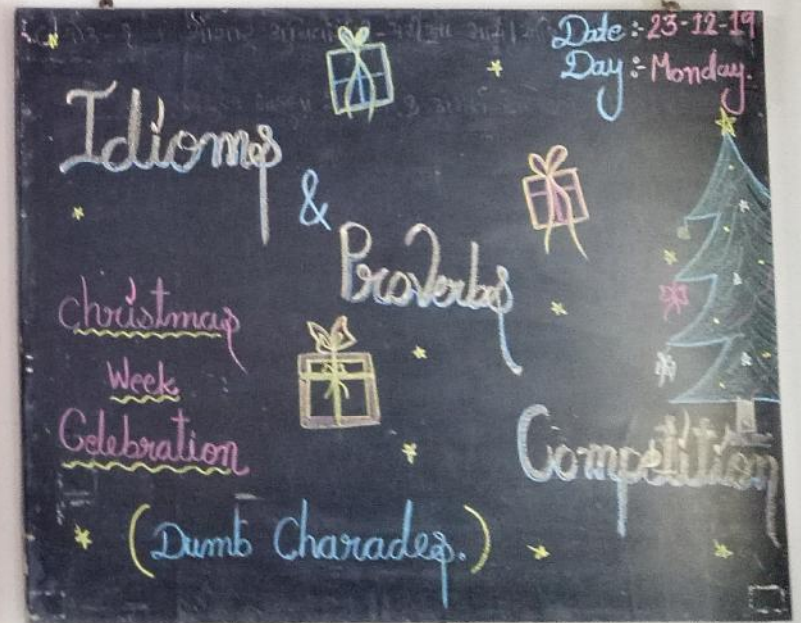 Date :- 23-12-19
Day :- Monday.
Idioms
&
Proverbs
Christmas
Week
Celebration
Competition
(Dumb Charades.)